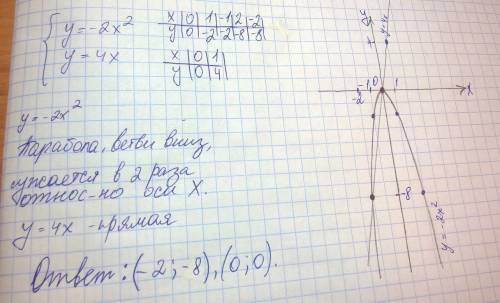 y=-2x²
x|0|1|-1|2|-2
y|0|-2|-2|-8|-8
y=4x
x|0|1
y|0|4
y=-2x²
Парабола, ветви вниз,
сужается в 2 раза
относ-но оси X.
y=4x -прямая
Ответ: (-2;-8),(0;0).
y=4x
-2 -1 0 1 X
-8
y=-2x²